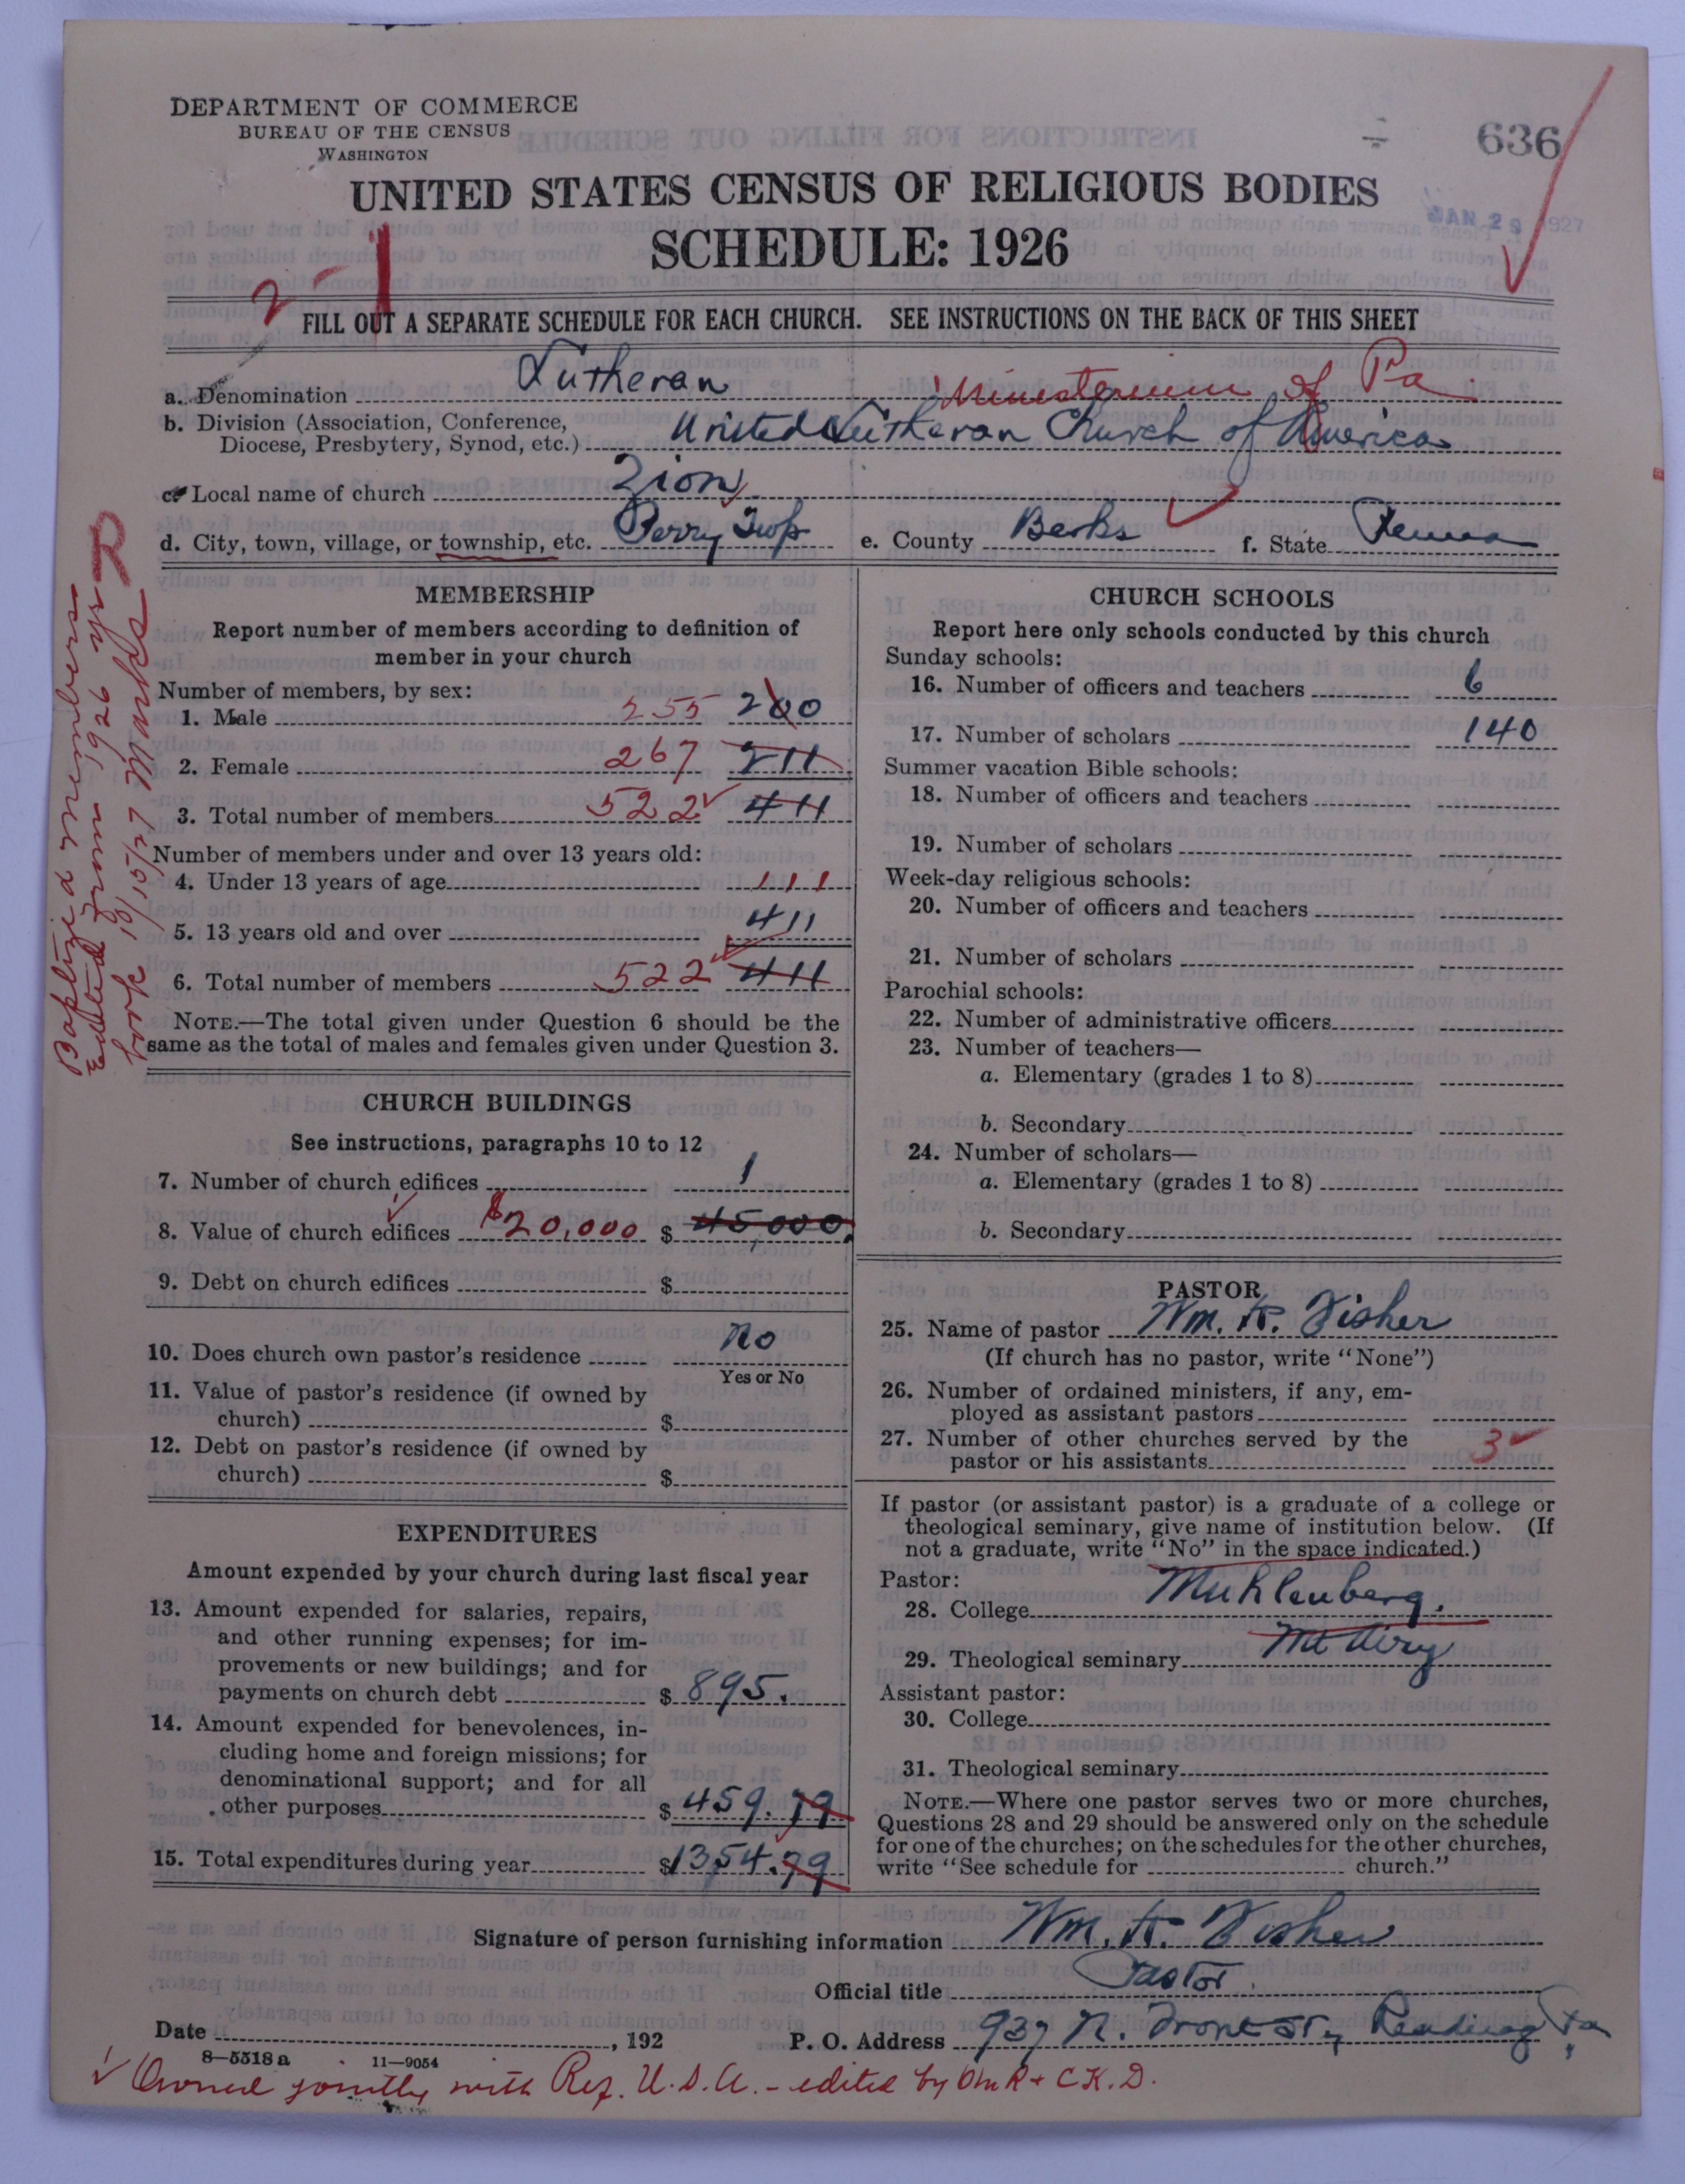 DEPARTMENT OF COMMERCE
BUREAU OF THE CENSUS
WASHINGTON
636
JAN 29 1927
UNITED STATES CENSUS OF RELIGIOUS BODIES
SCHEDULE: 1926
2-1
FILL OUT A SEPARATE SCHEDULE FOR EACH CHURCH. SEE INSTRUCTIONS ON THE BACK OF THIS SHEET
a. Denomination Lutheran Ministerium of Pa
b. Division (Association, Conference,
Diocese, Presbytery, Synod, etc.) United Lutheran Church of America
c. Local name of church Zion
d. City, town, village, or township, etc. Perry Twp e. County Berks f. State Penna
MEMBERSHIP
Report number of members according to definition of
member in your church
Number of members, by sex:
1. Male 255 200
2. Female 267 211
3. Total number of members 522 411
Number of members under and over 13 years old:
4. Under 13 years of age 111
5. 13 years old and over 411
6. Total number of members 522 411
NOTE.—The total given under Question 6 should be the
same as the total of males and females given under Question 3.
Baptized members
Edited from 1926 yr
book 10/15/27 Marks
CHURCH BUILDINGS
See instructions, paragraphs 10 to 12
7. Number of church edifices 1
8. Value of church edifices $20,000 $ 45,000
9. Debt on church edifices $
10. Does church own pastor's residence No
Yes or No
11. Value of pastor's residence (if owned by
church) $
12. Debt on pastor's residence (if owned by
church) $
EXPENDITURES
Amount expended by your church during last fiscal year
13. Amount expended for salaries, repairs,
and other running expenses; for im-
provements or new buildings; and for
payments on church debt $ 895.
14. Amount expended for benevolences, in-
cluding home and foreign missions; for
denominational support; and for all
other purposes $ 459.79
15. Total expenditures during year $1354.79
CHURCH SCHOOLS
Report here only schools conducted by this church
Sunday schools:
16. Number of officers and teachers 6
17. Number of scholars 140
Summer vacation Bible schools:
18. Number of officers and teachers
19. Number of scholars
Week-day religious schools:
20. Number of officers and teachers
21. Number of scholars
Parochial schools:
22. Number of administrative officers
23. Number of teachers—
a. Elementary (grades 1 to 8)
b. Secondary
24. Number of scholars—
a. Elementary (grades 1 to 8)
b. Secondary
PASTOR
25. Name of pastor Wm. K. Fisher
(If church has no pastor, write "None")
26. Number of ordained ministers, if any, em-
ployed as assistant pastors
27. Number of other churches served by the
pastor or his assistants 3
If pastor (or assistant pastor) is a graduate of a college or
theological seminary, give name of institution below. (If
not a graduate, write "No" in the space indicated.)
Pastor:
28. College Muhlenberg.
29. Theological seminary Mt Airy
Assistant pastor:
30. College
31. Theological seminary
NOTE.—Where one pastor serves two or more churches,
Questions 28 and 29 should be answered only on the schedule
for one of the churches; on the schedules for the other churches,
write "See schedule for church."
Signature of person furnishing information Wm. K. Fisher
Official title Pastor
Date , 192 P. O. Address 937 N. Front St, Reading Pa.
8—5518a 11—9054
Owned jointly with Ref. U.S.A. - edited by OMR + CKD.